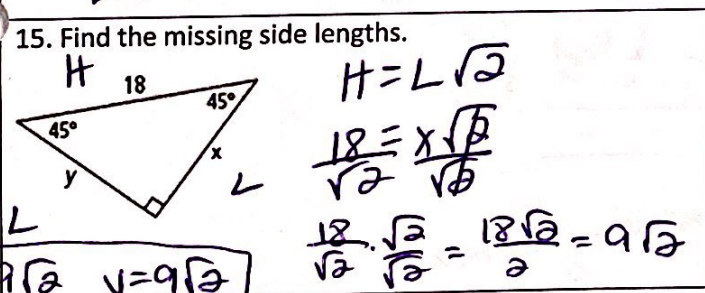 15. Find the missing side lengths.
H 18 45° 45° x y L L
H=L√2
18/√2 = x√2/√2
18/√2 · √2/√2 = 18√2/2 = 9√2
9√2 y=9√2